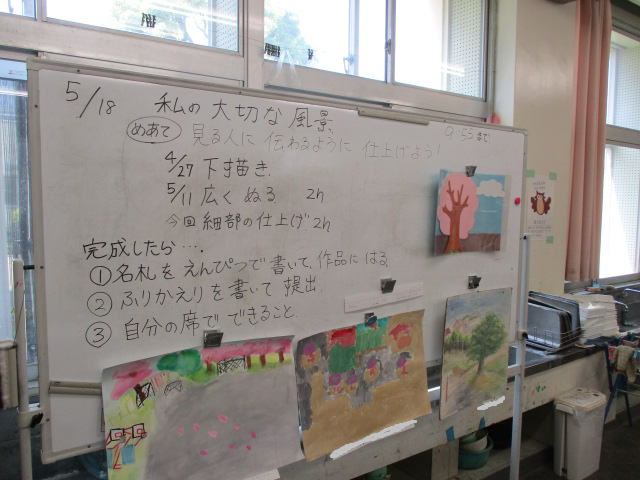 5/18 私の大切な風景
めあて 見る人に伝わるように 仕上げよう!
9:55まで
4/27 下描き
5/11 広くぬる 2h
今回 細部の仕上げ 2h
完成したら…
①名札をえんぴつで書いて、作品にはる
②ふりかえりを書いて提出
③自分の席でできること